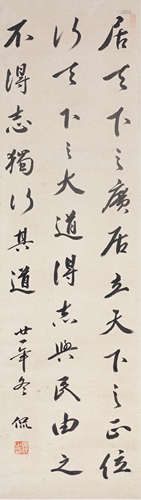 居天下之廣居立天下之正位
行天下之大道得志與民由之
不得志獨行其道
廿一年冬 侃